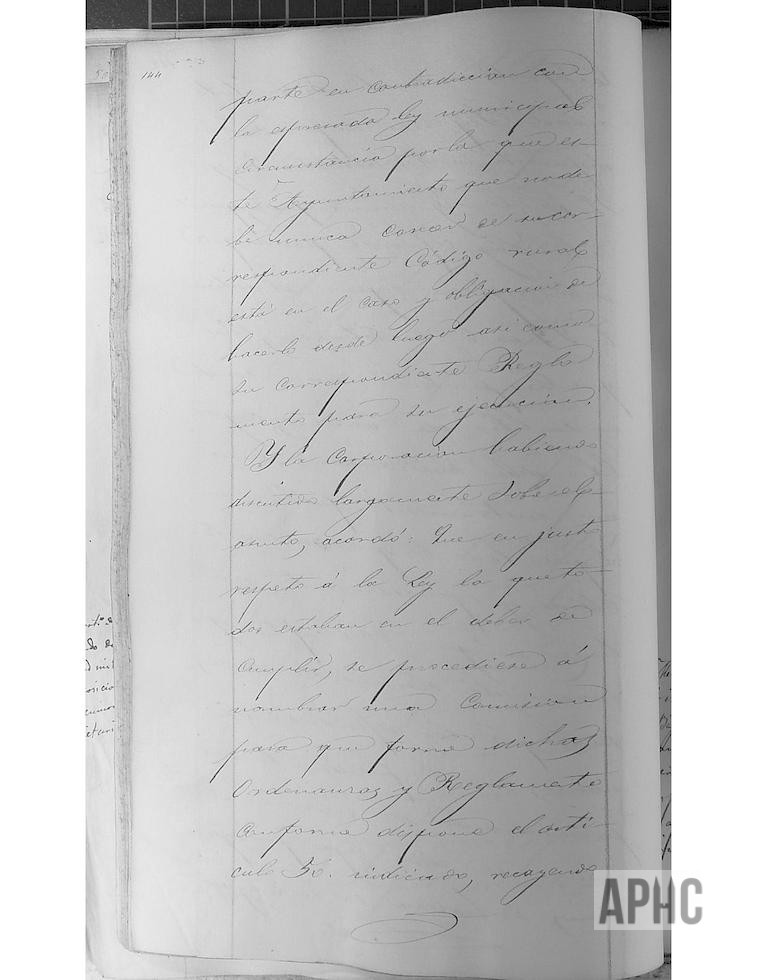 144
parte en contradiccion con
la espresada ley municipal
circunstancia por la que es-
te Ayuntamiento que no de-
be nunca carecer de su cor-
respondiente Código rural
está en el caso y obligacion de
hacerlo desde luego asi como
su correspondiente Regla
mento para su ejecucion.
Y la Corporacion habiendo
discutido largamente sobre el
asunto, acordó: Que en justo
respeto á la Ley la que to
dos estaban en el deber de
cumplir, se procediese á
nombrar una Comision
para que forme dichas
Ordenanzas y Reglamento
conforme dispone el arti-
culo 56. indicado, recayendo
APHC